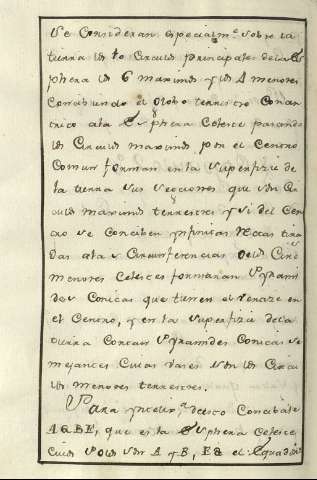 Se Consideran especialm.te sobre la
tierra los 10 Circulos principales de la Es
phera los 6 maximos y los 4 menores
Concibiendo el Globo terrestre Concen
trico a la Esphera Celeste pasando
los Circulos maximos por el Centro
Comun forman en la Superfizie de
la tierra sus secciones que son Cir
culos maximos terrestres y si del Cen
tro se Conciben ynfinitas Rectas tira
das a las Circunferencias de los Circu
menores Celestes formaran Pyrami
des Conicas que tienen el vertize en
el Centro, y en la Superfizie de la
tierra Cortan Pyramides Conicas se
mejantes Cuias vases son los Circu
los menores terrestres.
Para yntelix.a de esto Concibase
AQBE, que es la Esphera Celeste
Cuios Polos son A y B, EQ el Equador